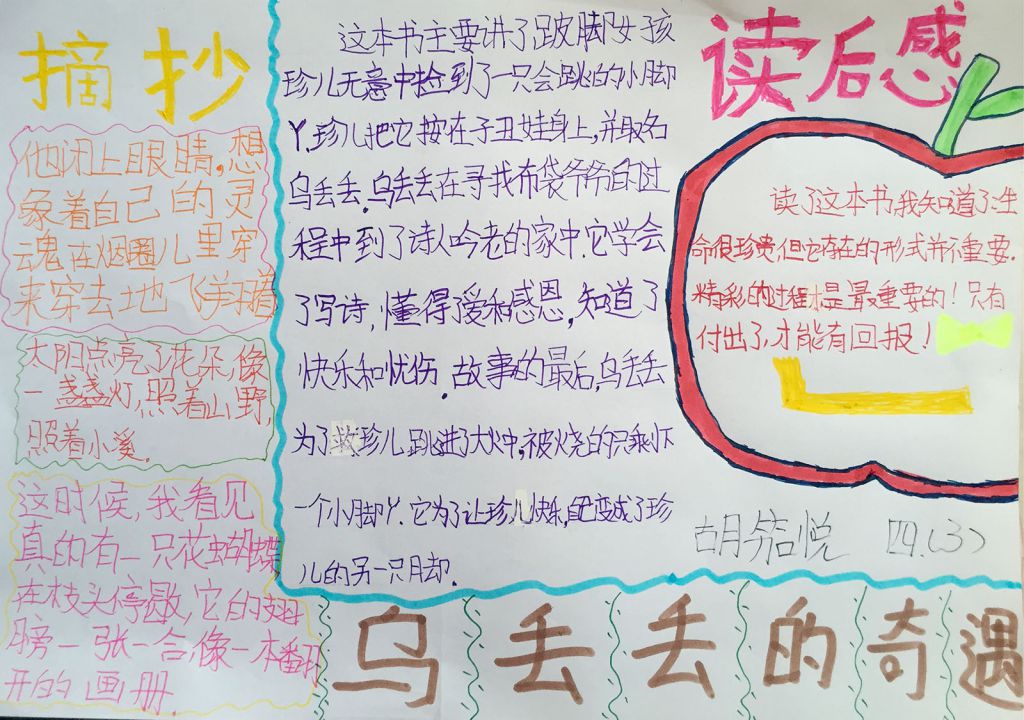 摘抄
他闭上眼睛,想
象着自己的灵
魂在烟圈儿里穿
来穿去地飞翔着
太阳点亮了花朵,像
一盏盏灯,照着山野,
照着小溪.
这时候,我看见
真的有一只花蝴蝶
在枝头停歇,它的翅
膀一张一合,像一本翻
开的画册.
这本书主要讲了跛脚女孩
珍儿无意中捡到了一只会跳的小脚
丫.珍儿把它按在子丑娃身上,并取名
乌丢丢.乌丢丢在寻找布袋爷爷的过
程中到了诗人吟老的家中.它学会
了写诗,懂得了爱和感恩,知道了
快乐和忧伤.故事的最后,乌丢丢
为了救珍儿跳进了大火中,被火烧的只剩下
一个小脚丫.它为了让珍儿快乐,自己变成了珍
儿的另一只脚.
读后感
读了这本书,我知道了:生
命很珍贵,但它存在的形式并不重要.
精彩的过程才是最重要的!只有
付出了,才能有回报!
胡筠悦 四.(3)
乌丢丢的奇遇